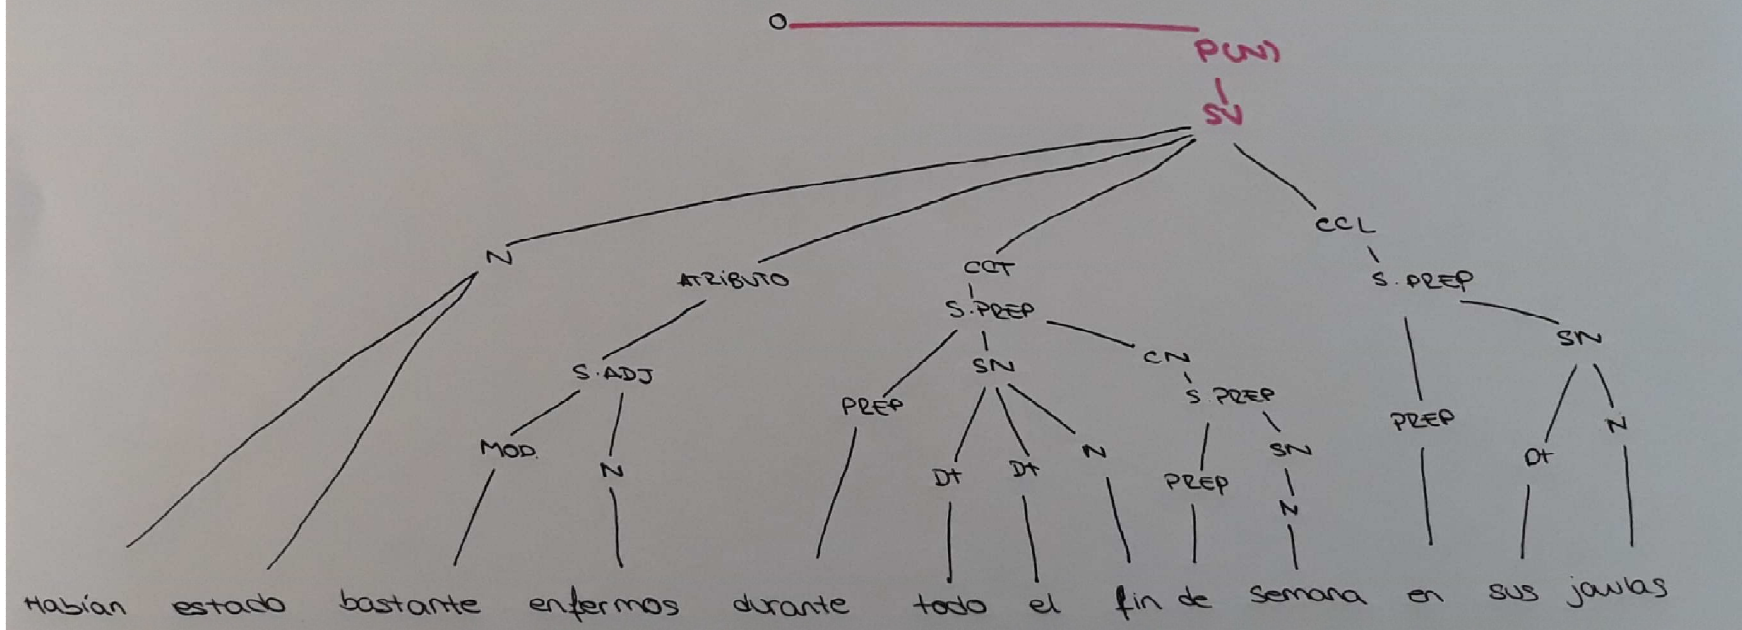 O
P(N)
SV
N
ATRIBUTO
CCT
CCL
S.PREP
S.PREP
S.ADJ
SN
CN
SN
MOD.
N
PREP
Dt
Dt
N
S.PREP
PREP
SN
N
PREP
Dt
N
Habían estado bastante enfermos durante todo el fin de semana en sus jaulas